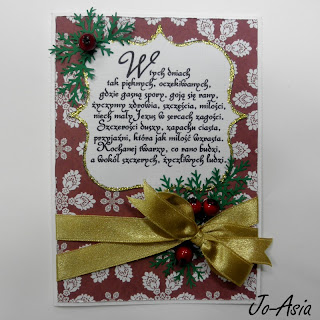 W tych dniach
tak pięknych, oczekiwanych,
gdzie gasną spory, goją się rany,
życzymy zdrowia, szczęścia, miłości,
niech mały Jezus w sercach zagości.
Szczerości duszy, zapachu ciasta,
przyjaźni, która jak miłość wzrasta.
Kochanej twarzy, co rano budzi,
a wokół szczerych, życzliwych ludzi.
Jo-Asia